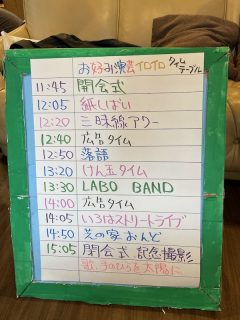 お好み演芸イロイロ タイムテーブル
11:45 開会式
12:05 紙しばい
12:20 三味線アワー
12:40 広告タイム
12:50 落語
13:20 けん玉タイム
13:30 LABO BAND
14:00 広告タイム
14:05 いろはストリートライブ
14:50 芝の家 おんど
15:05 閉会式 記念撮影
歌:手のひらを太陽に